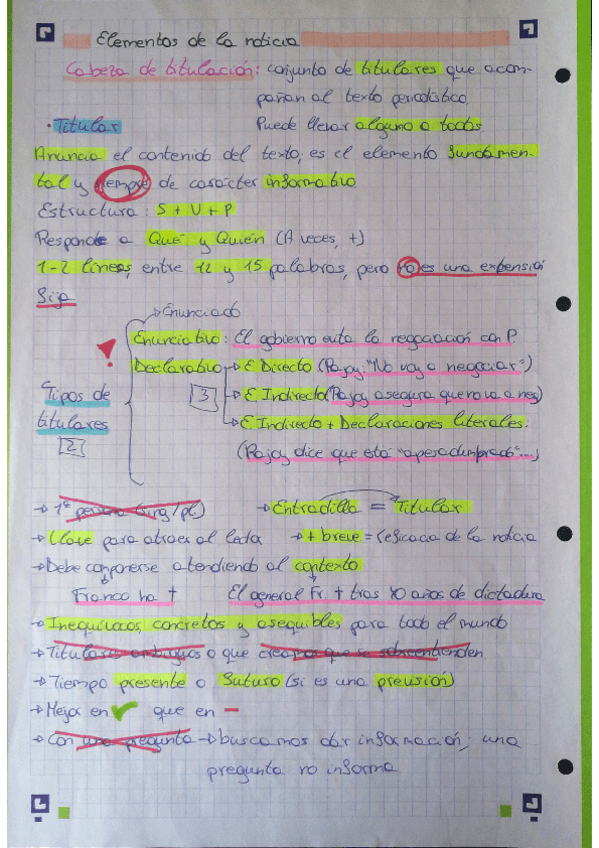 Elementos de la noticia
Cabeza de titulación: conjunto de titulares que acom-
pañan al texto periodístico
Puede llevar alguno o todos
· Titular
Anuncia el contenido del texto, es el elemento fundamen-
tal y siempre de carácter informativo
Estructura: S + V + P
Responde a Qué y Quién (A veces, +)
1-2 líneas, entre 12 y 15 palabras, pero no es una extensión
fija
→ Enunciado
! Enunciativo: El gobierno evita la negociación con P
Declarativo → E Directo (Rajoy: "No voy a negociar")
3 → E Indirecto (Rajoy asegura que no va a neg)
→ E Indirecto + Declaraciones literales.
(Rajoy dice que está "apesadumbrado"...)
Tipos de
titulares
2
→ 1ª persona (sing/pl)
→ Entradilla = Titular
→ Clave para atraer al lector
→ + breve = eficacia de la noticia
→ Debe componerse atendiendo al contexto
Franco ha †
El general Fr. † tras 40 años de dictadura
→ Inequívocos, concretos y asequibles para todo el mundo
→ Titulares ambiguos o que creamos que se sobreentienden
→ Tiempo presente o futuro (si es una previsión)
→ Mejor en ✓ que en -
→ Con una pregunta → buscamos dar información; una
pregunta no informa